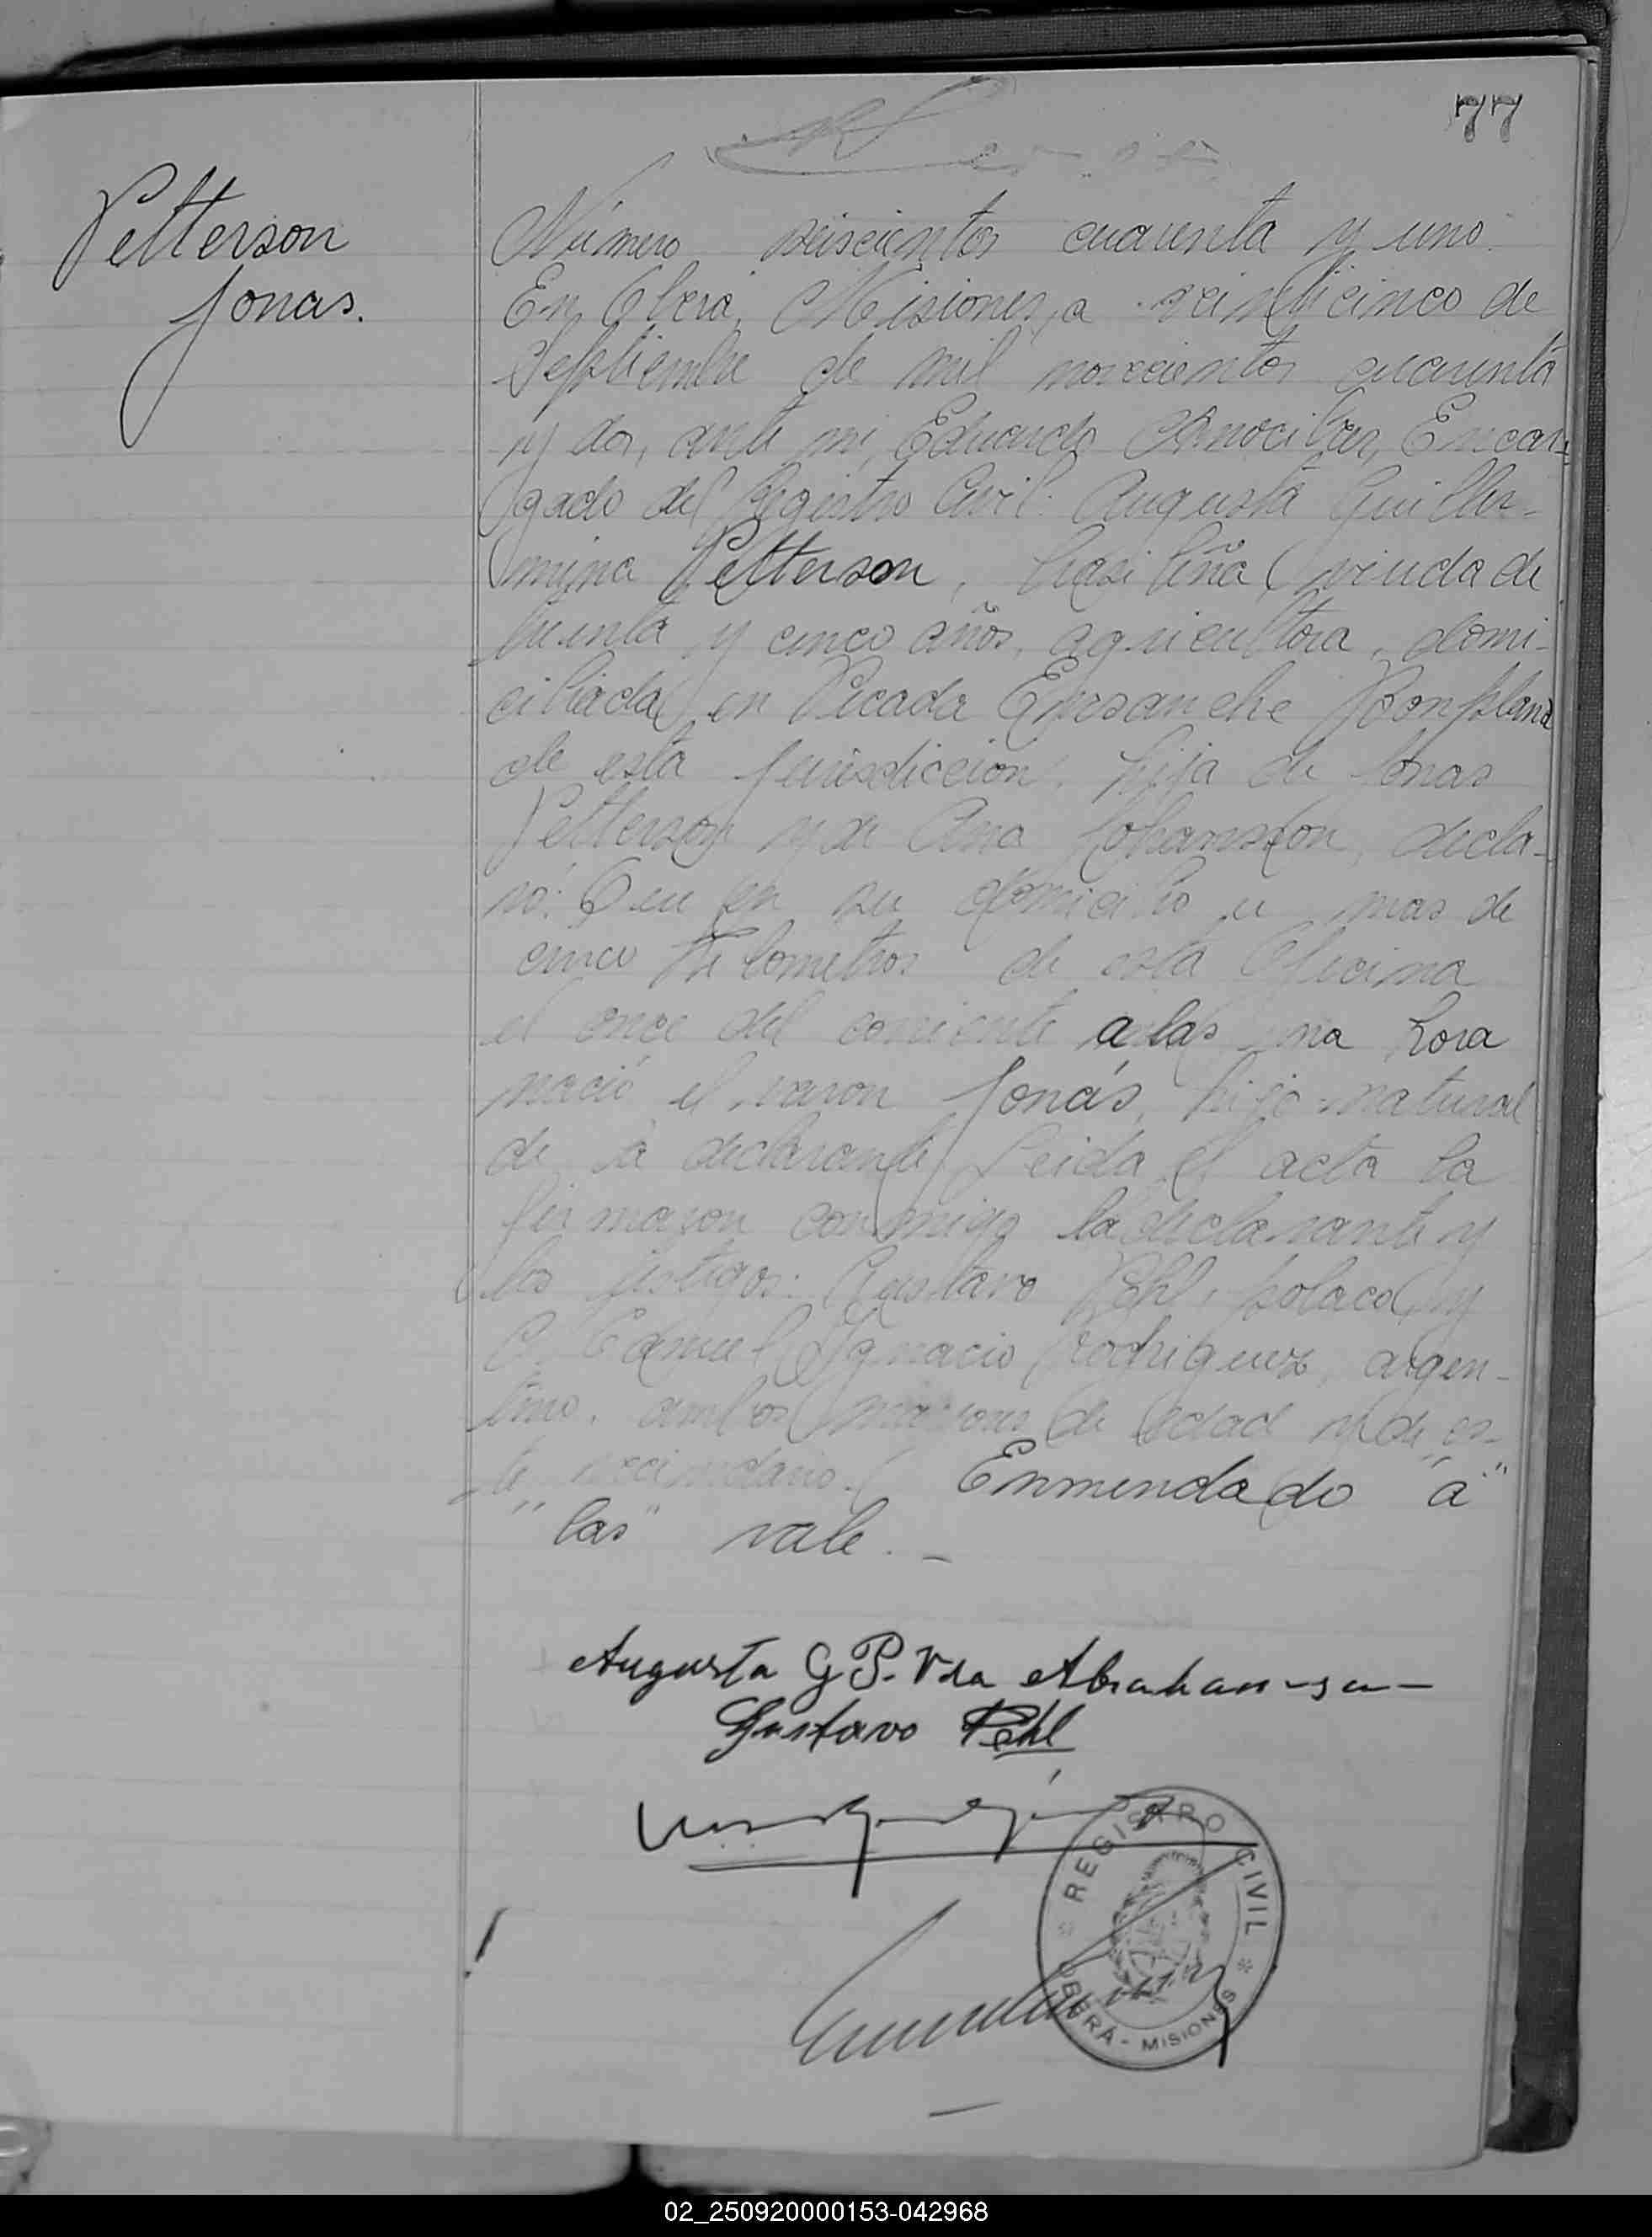 77
Petterson
Jonas.
Número seiscientos cuarenta y uno.
En Oberá, Misiones, a veinticinco de
Septiembre de mil novecientos cuarenta
y dos, ante mi, Eduardo Encar-
gado del Registro Civil: Augusta Guiller-
mina Petterson, brasileña, viuda de
treinta y cinco años, agricultora, domi-
ciliada en Picada Ensanche Bonpland
de esta jurisdiccion, hija de Jonas
Petterson y de Ana Johansson, decla-
ró: Que en su domicilio a mas de
cinco Kilometros de esta Oficina
el once del corriente a las una hora
nació el varon Jonás, hijo natural
de la declarante. Leida el acta la
firmaron conmigo la declarante y
los testigos: Gustavo Pohl, polaco, y
Ignacio Rodriguez, argen-
tino, ambos mayores de edad y de es-
te vecindario. Enmendado "a"
"las" vale.-
Augusta G P. Vda Abrahan-son
Gustavo Pohl
REGISTRO CIVIL
OBERÁ - MISIONES
02_250920000153-042968